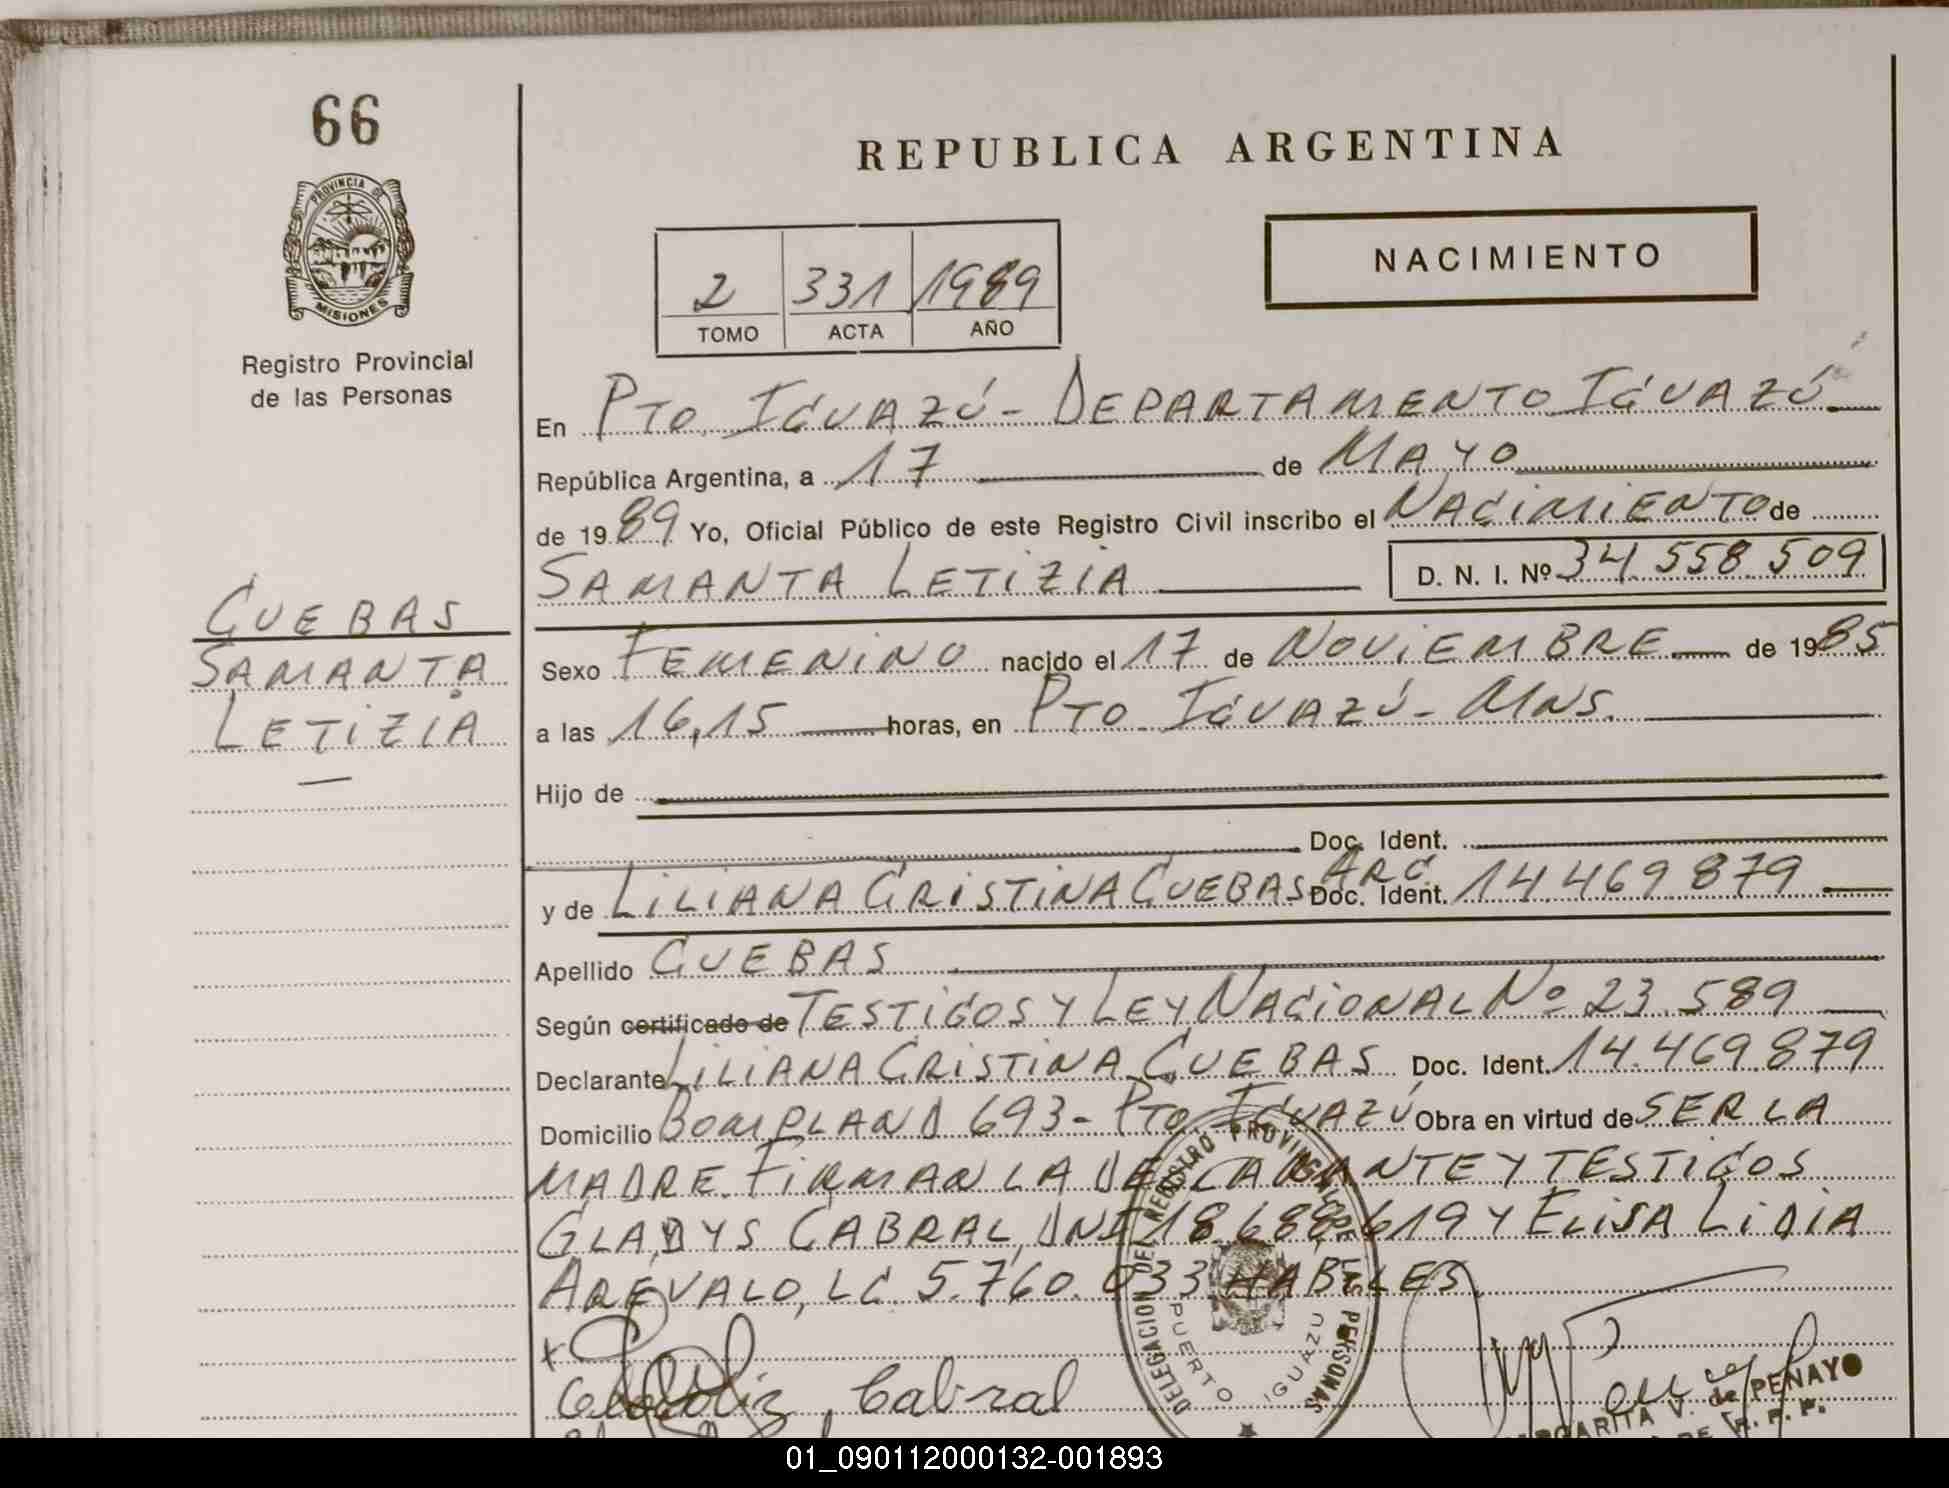 66
PROVINCIA DE
MISIONES
Registro Provincial
de las Personas
CUEBAS
SAMANTA
LETIZIA
REPUBLICA ARGENTINA
2 331 1989
TOMO ACTA AÑO
NACIMIENTO
En PTO. IGUAZÚ - DEPARTAMENTO IGUAZÚ
República Argentina, a 17 de MAYO
de 1989 Yo, Oficial Público de este Registro Civil inscribo el NACIMIENTO de
SAMANTA LETIZIA D. N. I. Nº 34.558.509
Sexo FEMENINO nacido el 17 de NOVIEMBRE de 1985
a las 16,15 horas, en PTO IGUAZÚ - MNS.
Hijo de
Doc. Ident.
y de LILIANA CRISTINA CUEBAS ARG. Doc. Ident. 14.469.879
Apellido CUEBAS
Según certificado de TESTIGOS Y LEY NACIONAL Nº 23.589
Declarante LILIANA CRISTINA CUEBAS Doc. Ident. 14.469.879
Domicilio BOMPLAND 693 - PTO IGUAZÚ Obra en virtud de SER LA
MADRE. FIRMAN LA DECLARANTE Y TESTIGOS
GLADYS CABRAL, DNI 18.688.619 Y ELISA LIDIA
AREVALO, LC. 5.760.033 HABILES
DELEGACION DEL REGISTRO PROVINCIAL DE LAS PERSONAS
PUERTO IGUAZU
Cabral
MARGARITA V. de PENAYO
01_090112000132-001893